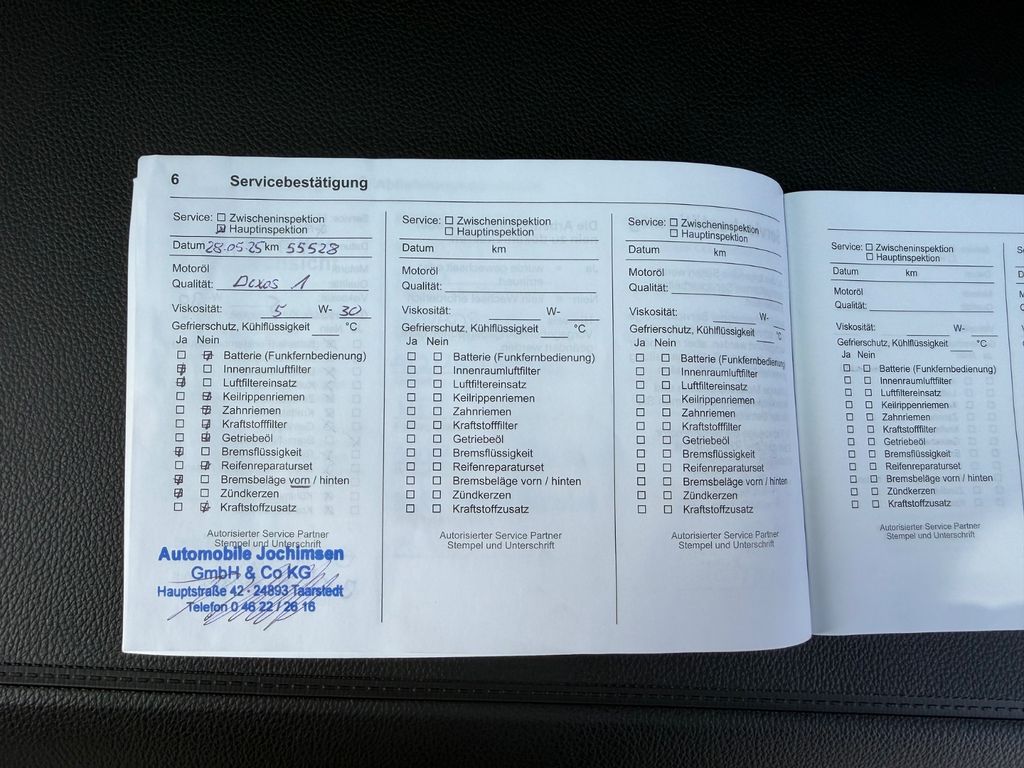 6 Servicebestätigung
Service: ☐ Zwischeninspektion
☑ Hauptinspektion
Datum 28.05.25 km 55528
Motoröl
Qualität: Dexos 1
Viskosität: 5 W- 30
Gefrierschutz, Kühlflüssigkeit ____ °C
Ja Nein
☐ ☑ Batterie (Funkfernbedienung)
☑ ☐ Innenraumluftfilter
☑ ☐ Luftfiltereinsatz
☐ ☑ Keilrippenriemen
☐ ☑ Zahnriemen
☐ ☑ Kraftstofffilter
☐ ☑ Getriebeöl
☑ ☐ Bremsflüssigkeit
☐ ☑ Reifenreparaturset
☑ ☐ Bremsbeläge vorn / hinten
☑ ☐ Zündkerzen
☐ ☑ Kraftstoffzusatz
Autorisierter Service Partner
Stempel und Unterschrift
Automobile Jochimsen
GmbH & Co KG
Hauptstraße 42 · 24893 Taarstedt
Telefon 0 46 22 / 26 16
Service: ☐ Zwischeninspektion
☐ Hauptinspektion
Datum km
Motoröl
Qualität:
Viskosität: W-
Gefrierschutz, Kühlflüssigkeit ____ °C
Ja Nein
☐ ☐ Batterie (Funkfernbedienung)
☐ ☐ Innenraumluftfilter
☐ ☐ Luftfiltereinsatz
☐ ☐ Keilrippenriemen
☐ ☐ Zahnriemen
☐ ☐ Kraftstofffilter
☐ ☐ Getriebeöl
☐ ☐ Bremsflüssigkeit
☐ ☐ Reifenreparaturset
☐ ☐ Bremsbeläge vorn / hinten
☐ ☐ Zündkerzen
☐ ☐ Kraftstoffzusatz
Autorisierter Service Partner
Stempel und Unterschrift
Service: ☐ Zwischeninspektion
☐ Hauptinspektion
Datum km
Motoröl
Qualität:
Viskosität: W-
Gefrierschutz, Kühlflüssigkeit ____ °C
Ja Nein
☐ ☐ Batterie (Funkfernbedienung)
☐ ☐ Innenraumluftfilter
☐ ☐ Luftfiltereinsatz
☐ ☐ Keilrippenriemen
☐ ☐ Zahnriemen
☐ ☐ Kraftstofffilter
☐ ☐ Getriebeöl
☐ ☐ Bremsflüssigkeit
☐ ☐ Reifenreparaturset
☐ ☐ Bremsbeläge vorn / hinten
☐ ☐ Zündkerzen
☐ ☐ Kraftstoffzusatz
Autorisierter Service Partner
Stempel und Unterschrift
Service: ☐ Zwischeninspektion
☐ Hauptinspektion
Datum km
Motoröl
Qualität:
Viskosität: W-
Gefrierschutz, Kühlflüssigkeit ____ °C
Ja Nein
☐ ☐ Batterie (Funkfernbedienung)
☐ ☐ Innenraumluftfilter
☐ ☐ Luftfiltereinsatz
☐ ☐ Keilrippenriemen
☐ ☐ Zahnriemen
☐ ☐ Kraftstofffilter
☐ ☐ Getriebeöl
☐ ☐ Bremsflüssigkeit
☐ ☐ Reifenreparaturset
☐ ☐ Bremsbeläge vorn / hinten
☐ ☐ Zündkerzen
☐ ☐ Kraftstoffzusatz
Autorisierter Service Partner
Stempel und Unterschrift